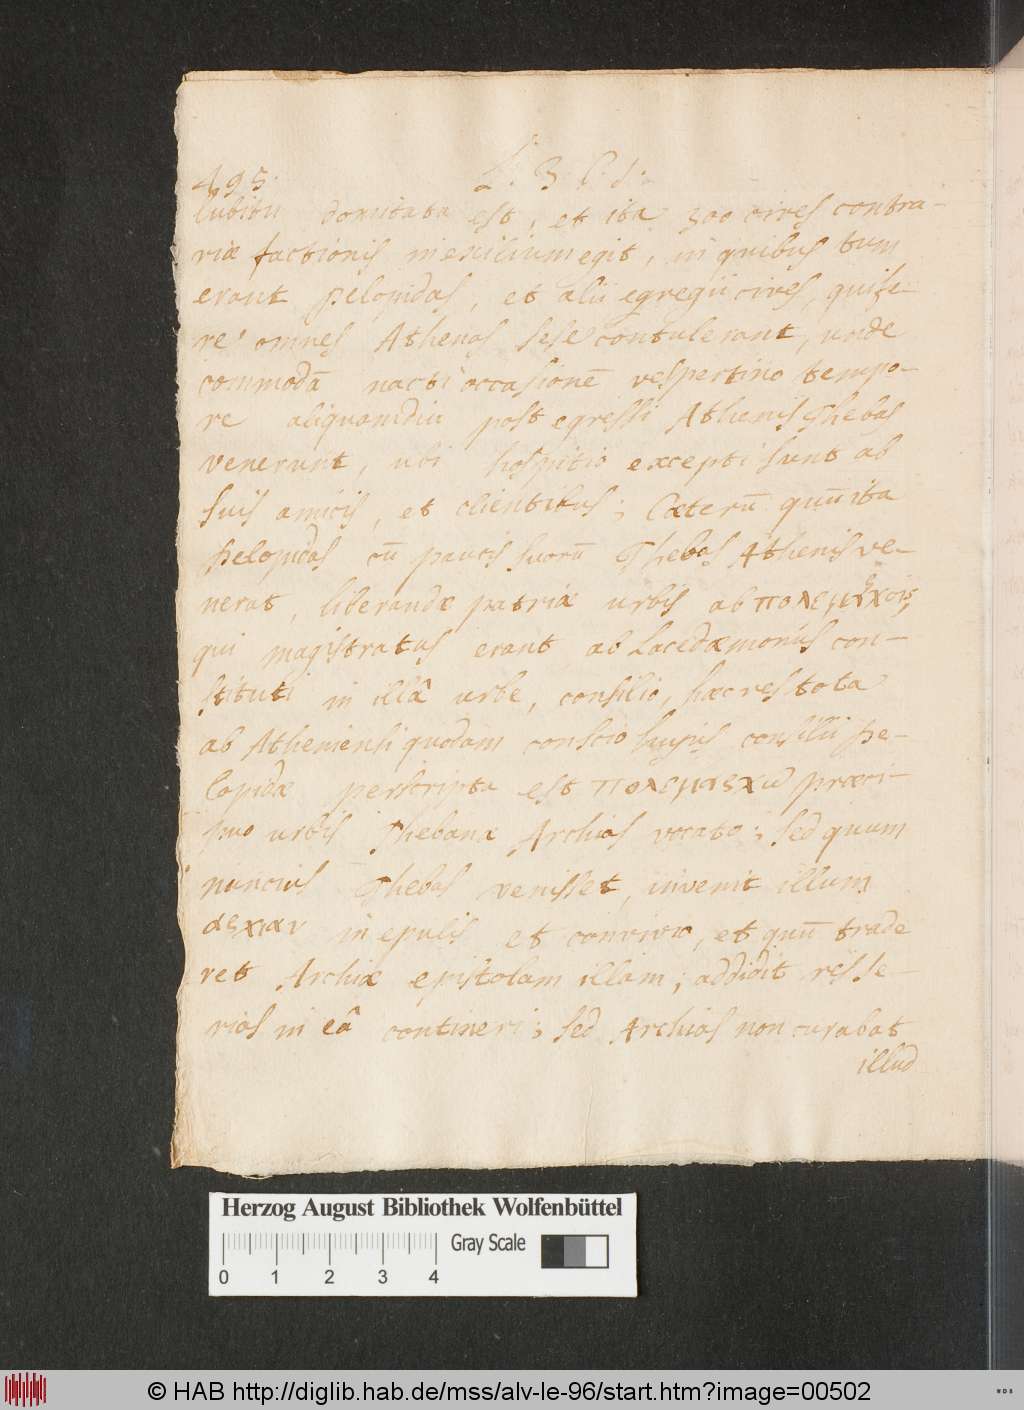 495.
L. 3 C. d.
lubitu domitata est, et ita 300 cives contra-
riæ factionis in exilium egit, in quibus tum
erant Pelopidas, et alii egregii cives, qui fe-
re omnes Athenas sese contulerant, unde
commodā nacti occasionē vespertino tempo-
re aliquamdiu post egressi Athenis Thebas
venerunt, ubi hospitio excepti sunt ab
suis amicis, et clientibus; Cæterū quū ita
Pelopidas cū paucis suorū Thebas Athenis ve-
nerat, liberandæ patriæ urbis ab πολεμάρχοις,
qui magistratus erant ab Lacedæmoniis con-
stituti in illâ urbe, consilio, hæc res tota
ab Atheniensi quodam conscio hujus consilii Pe-
lopidæ perscripta est πολεμαρχω præci-
puo urbis Thebanæ Archias vocato; sed quum
nuncius Thebas venisset, invenit illum
αρχιαν in epulis et convivio, et quū trade
ret Archiæ epistolam illam; addidit res se
rias in eâ contineri; sed Archias non curabat
illud
Herzog August Bibliothek Wolfenbüttel
Gray Scale
0 1 2 3 4
© HAB http://diglib.hab.de/mss/alv-le-96/start.htm?image=00502